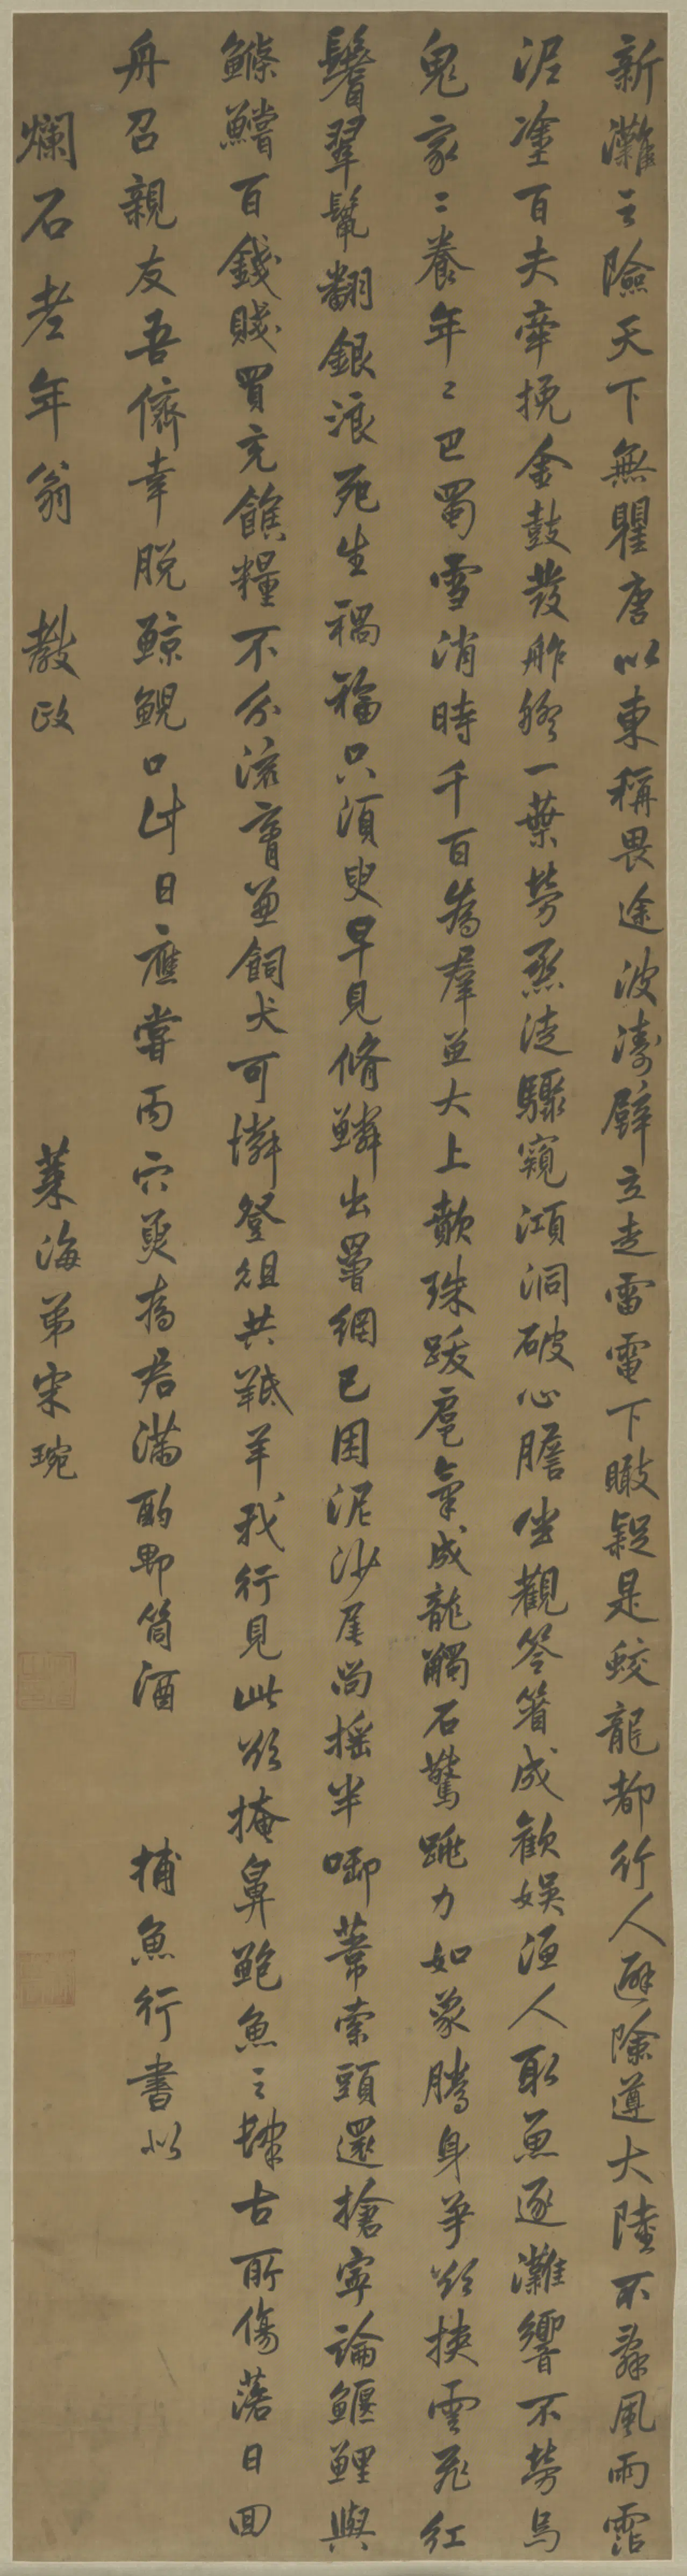 新灘之險天下無瞿唐以東稱畏途波濤壁立走雷電下瞰疑是蛟龍都行人避險遵大陸不辭風雨霑
泥塗百夫牽挽金鼓發舴艋一葉勞烝徒驟窺澒洞破心膽坐觀笭箵成歡娛漁人取魚逐灘響不勞烏
鬼家〻養年〻巴蜀雪消時千百為羣並大上歕珠跋扈氣成龍觸石驚跳力如象騰身爭欲挾雲飛紅
鬐翠鬣翻銀浪死生禍福只須臾早見脩鱗出罾網已困泥沙尾尚搖半啣葦索頭還搶寧論鰋鯉與
鰷鱨百錢賤買充餱糧不分流膏並飼犬可憐登俎共羝羊我行見此欲掩鼻鮑魚之肆古所傷落日回
舟召親友吾儕幸脫鯨鯢口此日應嘗丙穴魚為君滿酌郫筒酒 捕魚行書似
爛石老年翁 教政
萊海弟宋琬